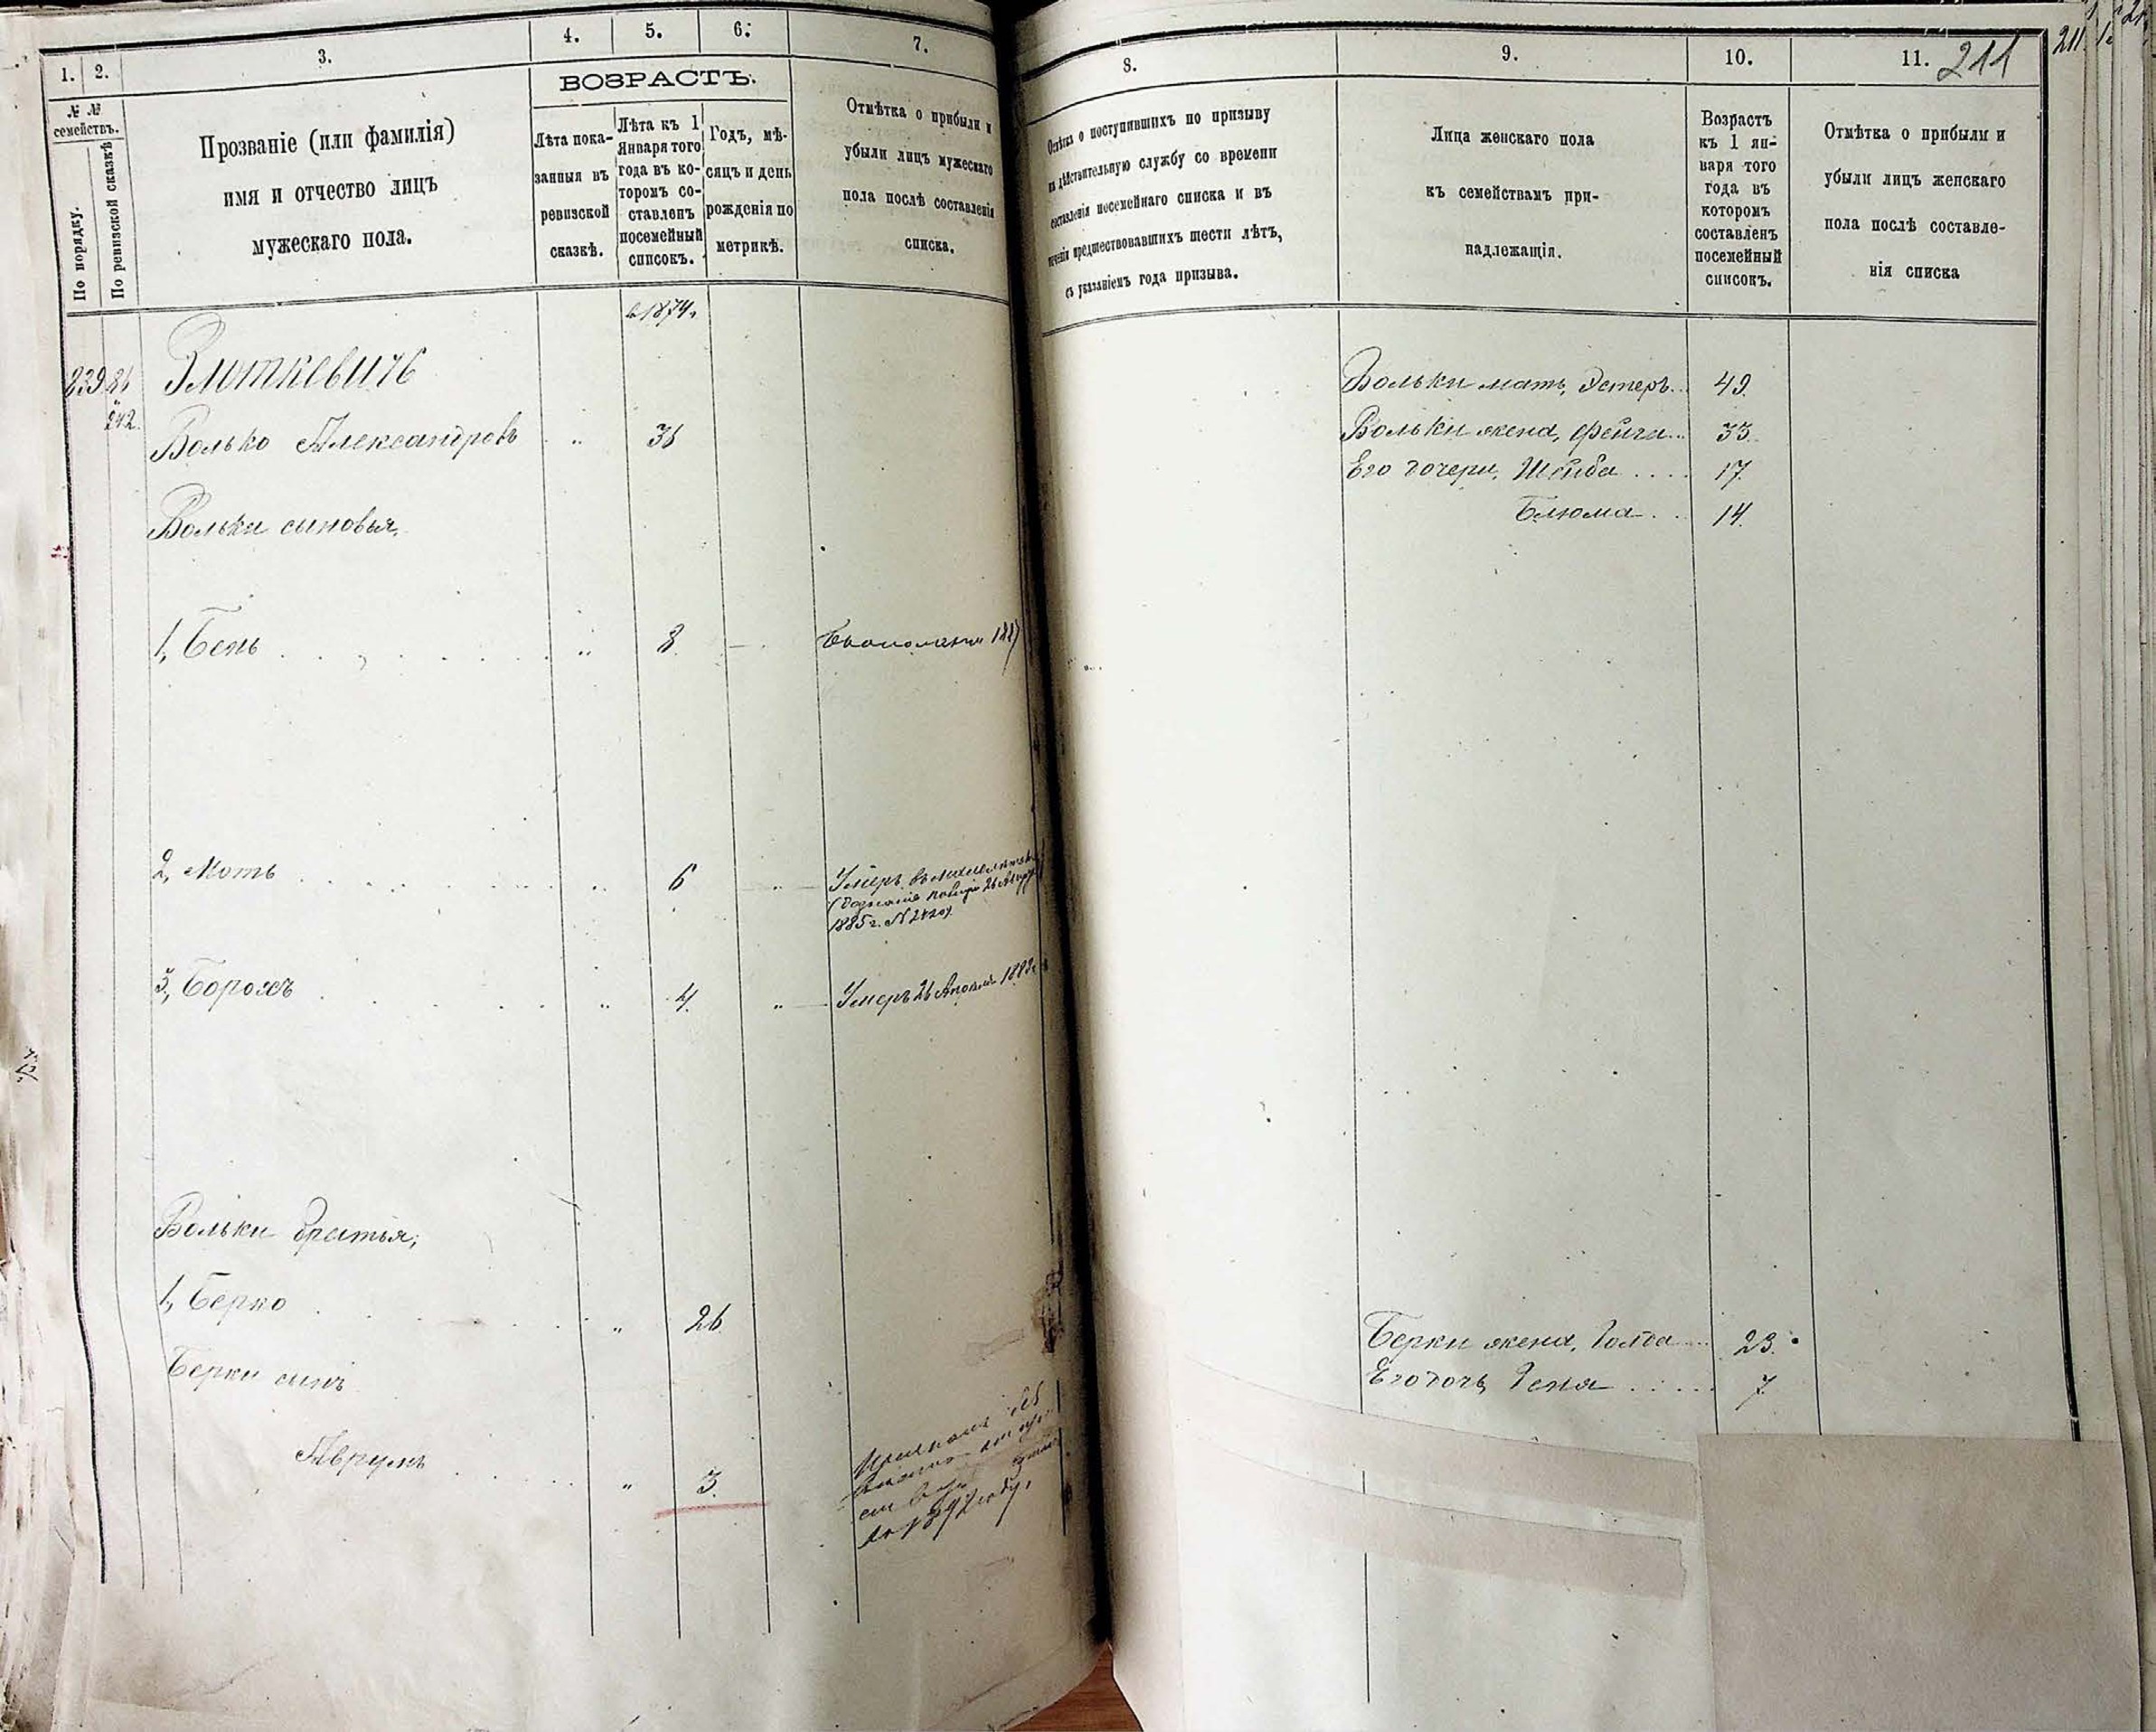 1.
2.
3.
4.
5.
6.
7.
№ №
семействъ.
По порядку.
По ревизской сказкѣ
Прозваніе (или фамилія)
имя и отчество лицъ
мужескаго пола.
ВОЗРАСТЪ.
Лѣта пока-
занныя въ
ревизской
сказкѣ.
Лѣта къ 1
Января того
года въ ко-
торомъ со-
ставленъ
посемейный
списокъ.
Годъ, мѣ-
сяцъ и день
рожденія по
метрикѣ.
Отмѣтка о прибыли и
убыли лицъ мужескаго
пола послѣ составленія
списка.
в 1874 г.
239
Злоткевичъ
242.
Волько Александровъ " 36
Вольки сыновья,
1, Бень " 8
2, Моть " 6 " Умеръ
1885 г. №
3, Борохъ " 4. " Умеръ 26 Апрѣля
Вольки братья,
1, Берко " 26
Берки сынъ
Аврумъ " 3.
1892 году.
8.
9.
10.
11.
211
Отмѣтка о поступившихъ по призыву
на дѣйствительную службу со времени
составленія посемейнаго списка и въ
теченіи предшествовавшихъ шести лѣтъ,
съ указаніемъ года призыва.
Лица женскаго пола
къ семействамъ при-
надлежащія.
Возрастъ
къ 1 ян-
варя того
года въ
которомъ
составленъ
посемейный
списокъ.
Отмѣтка о прибыли и
убыли лицъ женскаго
пола послѣ составле-
нія списка
Вольки мать, Эстеръ 49.
Вольки жена, Фейга 33.
Его дочери, Шейба 17.
Блюма 14.
Берки жена, Голда 23.
Его дочь, Геня 7.